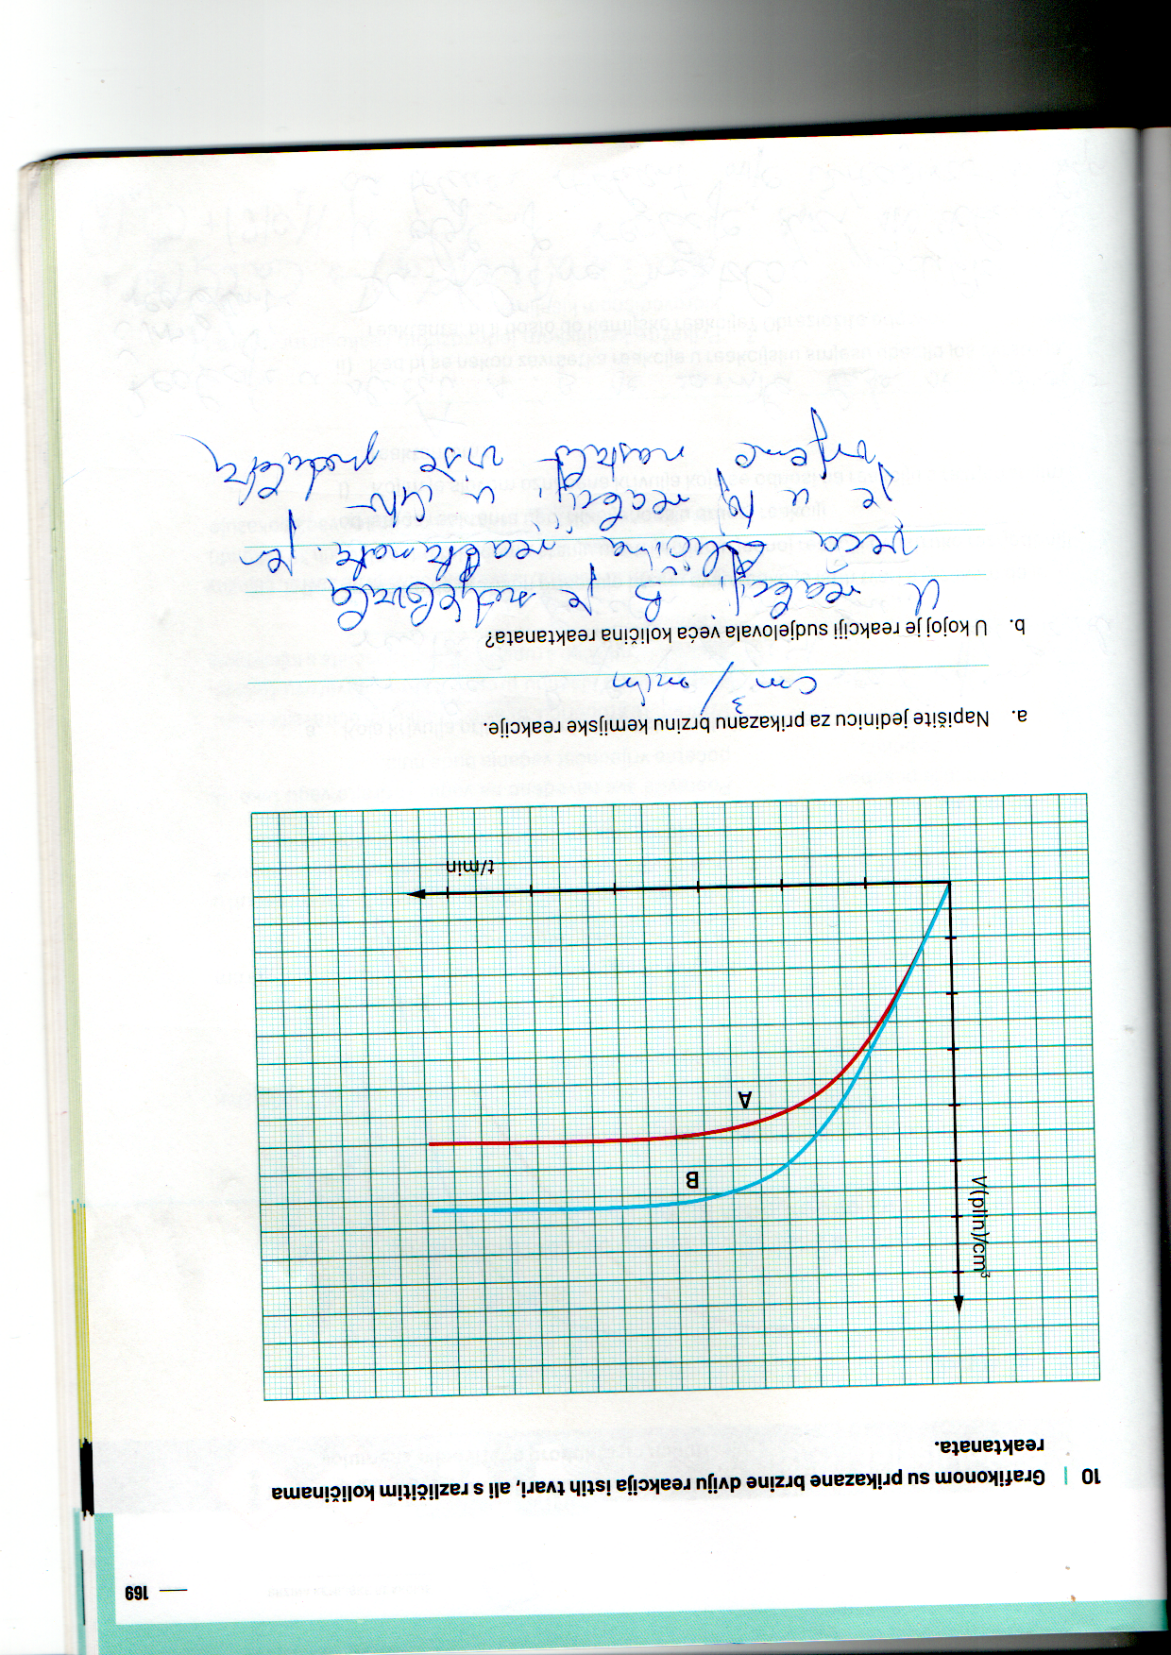 169
10 | Grafikonom su prikazane brzine dviju reakcija istih tvari, ali s različitim količinama
reaktanata.
V(plin)/cm³
B
A
t/min
a. Napišite jedinicu za prikazanu brzinu kemijske reakcije.
cm³/min
b. U kojoj je reakciji sudjelovala veća količina reaktanata?
U reakciji B je sudjelovala
veća količina reaktanata jer
je u toj reakciji u
vrijeme nastalo više produkta